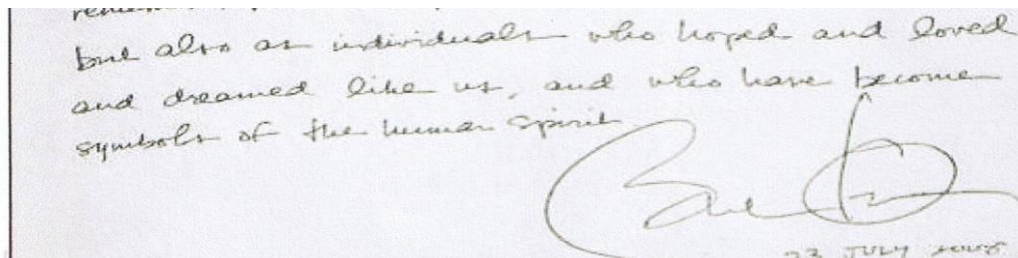 but also as individuals who hoped and loved
and dreamed like us, and who have become
symbols of the human spirit
23 JULY 2008